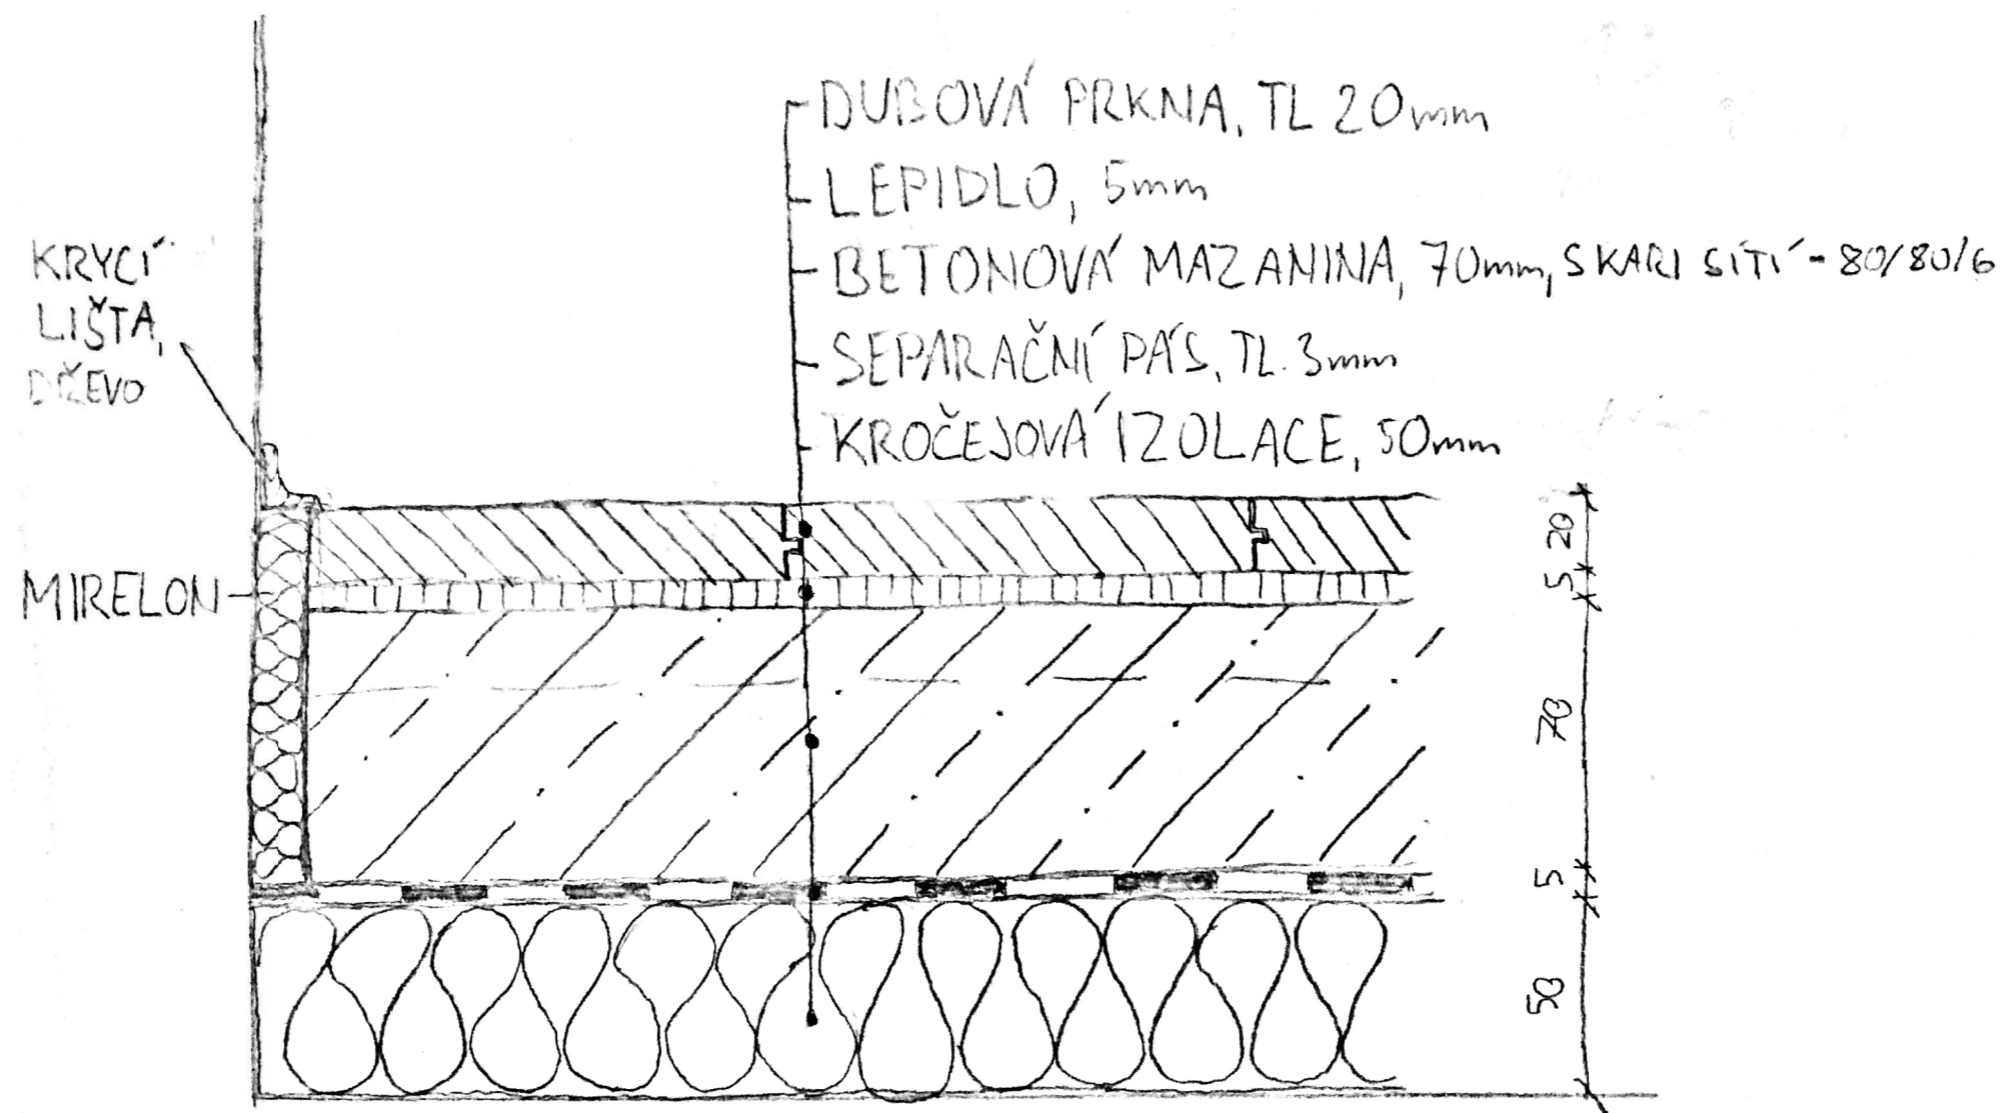 DUBOVÁ PRKNA, TL 20mm
LEPIDLO, 5mm
BETONOVÁ MAZANINA, 70mm, S KARI SÍTÍ - 80/80/6
SEPARAČNÍ PÁS, TL. 3mm
KROČEJOVÁ IZOLACE, 50mm
KRYCÍ
LIŠTA,
DŘEVO
MIRELON
20
5
70
5
50